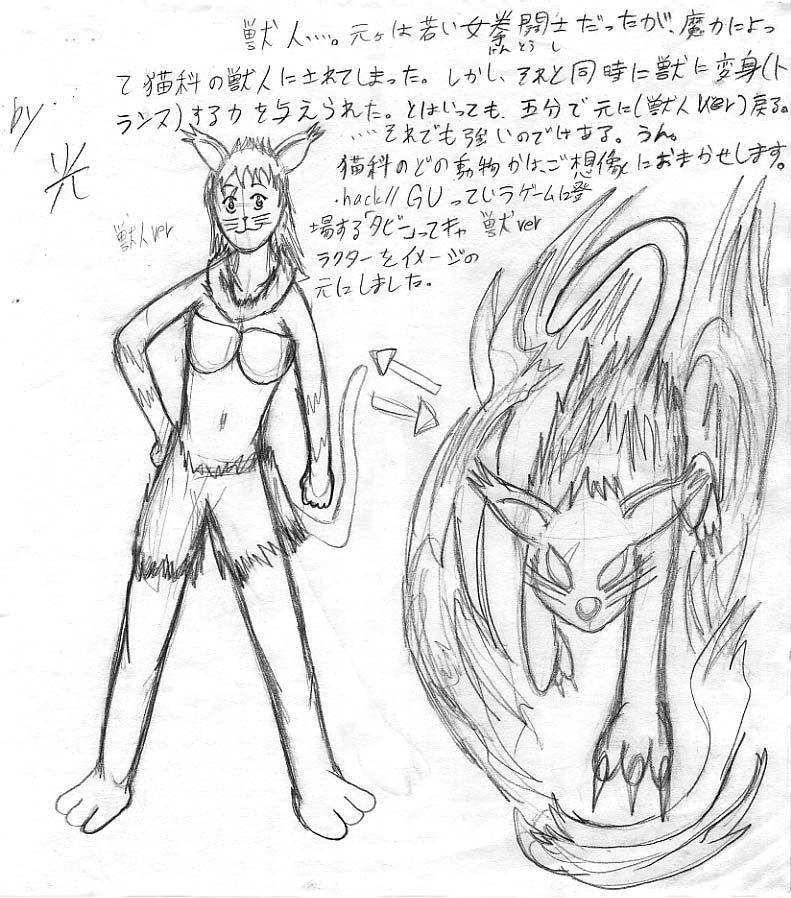 獣人…。元々は若い女拳闘士だったが、魔力によっ
けんとうし
て猫科の獣人にされてしまった。しかし、それと同時に獣に変身(ト
ランス)する力を与えられた。とはいっても、五分で元に(獣人ver)戻る。
……それでも強いのではある。うん。
猫科のどの動物かは、ご想像におまかせします。
.hack//GUっていうゲームに登
場する「タビー」ってキャ
ラクターをイメージの
元にしました。
by
光
獣人ver
獣ver